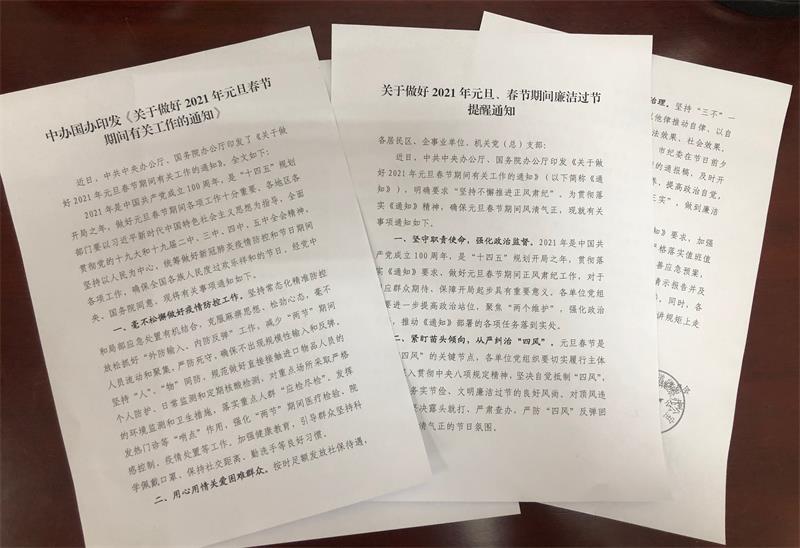 中办国办印发《关于做好 2021 年元旦春节
期间有关工作的通知》
近日，中共中央办公厅、国务院办公厅印发了《关于做
好 2021 年元旦春节期间有关工作的通知》，全文如下：
2021 年是中国共产党成立 100 周年，是“十四五”规划
开局之年，做好元旦春节期间各项工作十分重要。各地区各
部门要以习近平新时代中国特色社会主义思想为指导，全面
贯彻党的十九大和十九届二中、三中、四中、五中全会精神，
坚持以人民为中心，统筹做好新冠肺炎疫情防控和节日期间
各项工作，确保全国各族人民度过欢乐祥和的节日。经党中
央、国务院同意，现将有关事项通知如下。
一、毫不松懈做好疫情防控工作。坚持常态化精准防控
和局部应急处置有机结合，克服麻痹思想、松劲心态，毫不
放松抓好“外防输入、内防反弹”工作，减少“两节”期间
人员流动和聚集，严防死守，确保不出现规模性输入和反弹。
坚持“人”、“物”同防，规范做好直接接触进口物品人员的
个人防护、日常监测和定期核酸检测，对重点场所采取严格
的环境监测和卫生措施，落实重点人群“应检尽检”。发挥
发热门诊等“哨点”作用，强化“两节”期间医疗检验，院
感控制、疫情处置等工作。加强健康教育，引导群众坚持科
学佩戴口罩、保持社交距离、勤洗手等良好习惯。
二、用心用情关爱困难群众。按时足额发放社保待遇，
关于做好 2021 年元旦、春节期间廉洁过节
提醒通知
各居民区、企事业单位、机关党（总）支部：
近日，中共中央办公厅、国务院办公厅印发《关于做
好 2021 年元旦春节期间有关工作的通知》（以下简称《通
知》），明确要求“坚持不懈推进正风肃纪”。为贯彻落
实《通知》精神，确保元旦春节期间风清气正，现就有关
事项通知如下。
一、坚守职责使命，强化政治监督。2021 年是中国共
产党成立 100 周年，是“十四五”规划开局之年，贯彻落
实《通知》要求、做好元旦春节期间正风肃纪工作，对于
应群众期待、保障开局起步具有重要意义。各单位党组
要进一步提高政治站位，聚焦“两个维护”，强化政治
，推动《通知》部署的各项任务落到实处。
二、紧盯苗头倾向，从严纠治“四风”。元旦春节是
“四风”的关键节点，各单位党组织要切实履行主体
入贯彻中央八项规定精神，坚决自觉抵制“四风”，
务实节俭、文明廉洁过节的良好风尚。对顶风违
决露头就打、严肃查办，严防“四风”反弹回
气正的节日氛围。
治理。坚持“三不”一
他律推动自律、以自
法效果、社会效果、
市纪委在节日前夕
的通报稿，及时开
养，提高政治自觉，
三实”，做到廉洁
知》要求，加强
格落实值班值
善应急预案，
请示报告并及
，同时，各
讲规矩上走